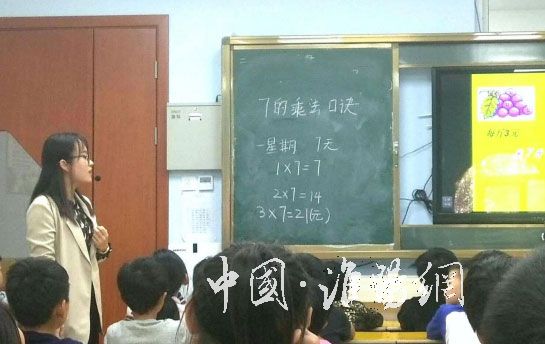 7的乘法口诀
一星期 7天
1×7=7
2×7=14
3×7=21(元)
每斤3元
中國·淮陽網